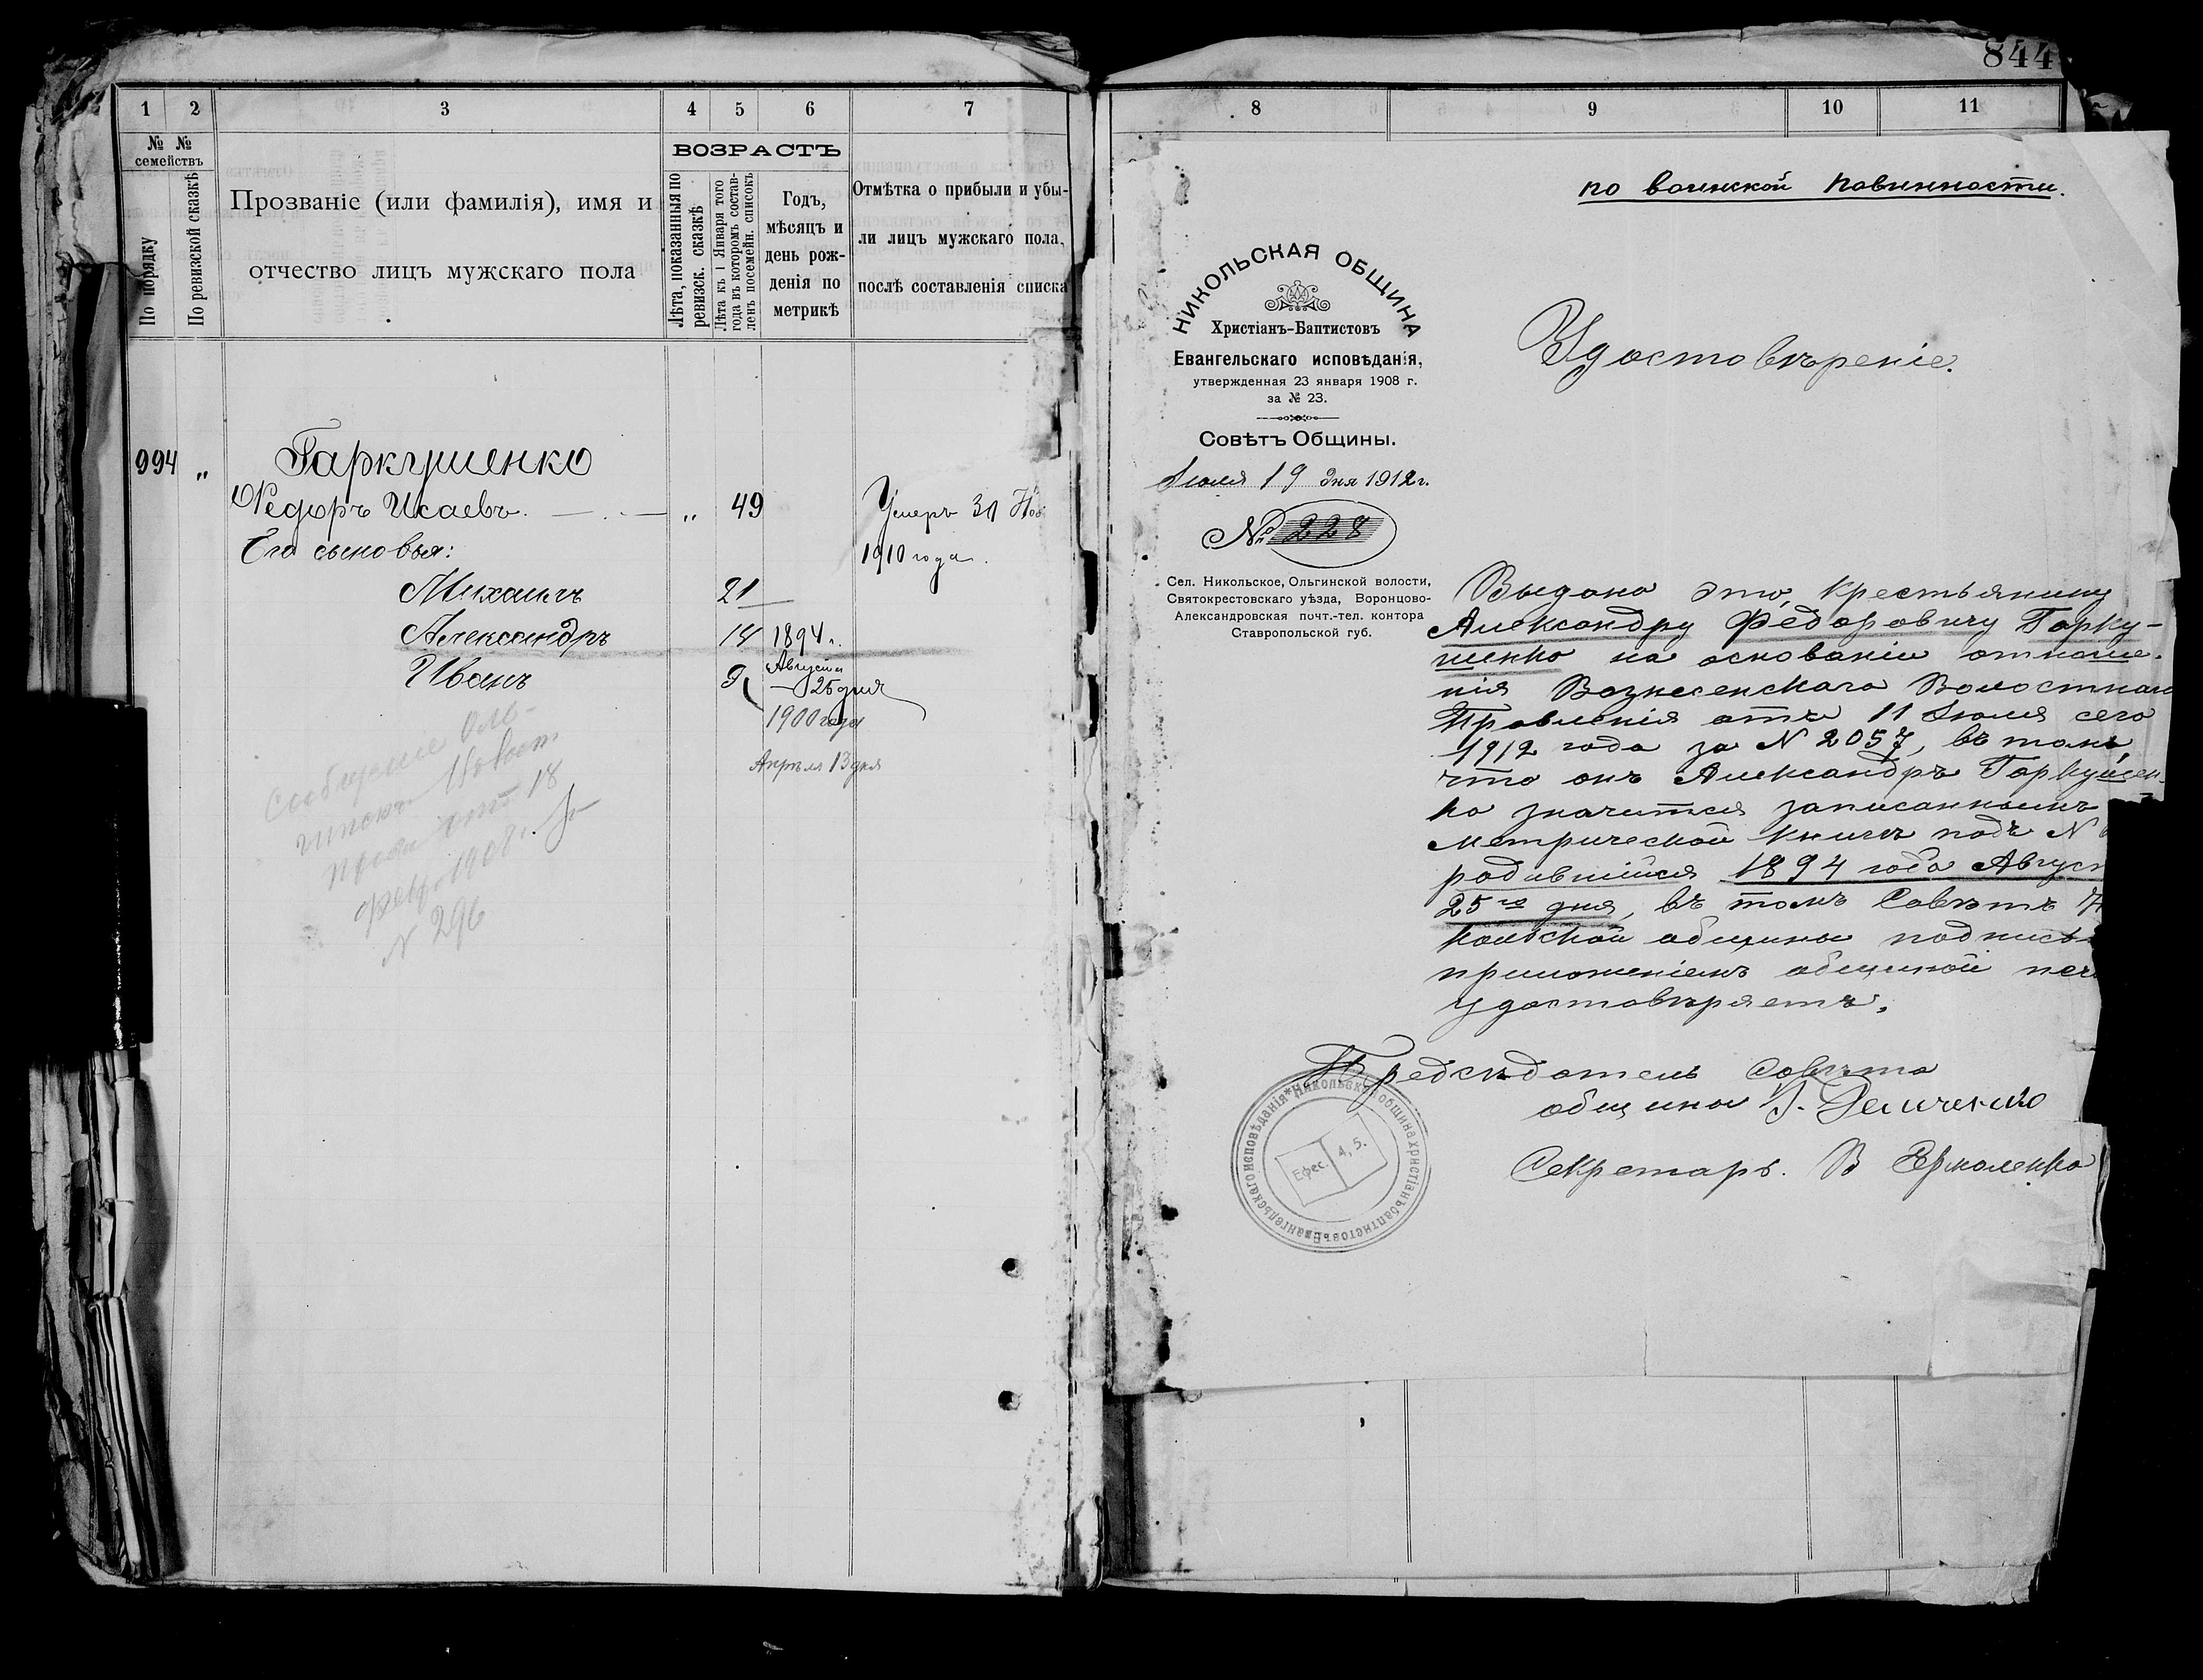 1 2 3 4 5 6 7
№ № семействъ
По порядку
По ревизской сказкѣ
Прозваніе (или фамилія), имя и
отчество лицъ мужскаго пола
ВОЗРАСТЪ
Лѣта, показанныя по
ревизск. сказкѣ
Лѣта къ 1 Января того
года въ которомъ состав-
ленъ посемейн. списокъ
Годъ,
мѣсяцъ и
день рож-
денія по
метрикѣ
Отмѣтка о прибыли и убы-
ли лицъ мужскаго пола,
послѣ составленія списка
994 „ Гаркушенко
Ѳедоръ Исаевъ. „ 49 Умеръ 30 Ноя
Его сыновья: 1910 года.
Михаилъ 21
Александръ 14 1894 г.
Августа
25 дня
Иванъ 9
1900 года
Апрѣля 13 дня
Сообщеніе Оль-
гинскаго Волост
правл отъ 18
февр. 1908 г. за
N 296
844
8 9 10 11
по воинской повинности.
НИКОЛЬСКАЯ ОБЩИНА
Христіанъ-Баптистовъ
Евангельскаго исповѣданія,
утвержденная 23 января 1908 г.
за № 23.
СовѢтъ Общины.
Іюля 19 дня 1912 г.
№ 228
Сел. Никольское, Ольгинской волости,
Святокрестовскаго уѣзда, Воронцово-
Александровская почт.-тел. контора
Ставропольской губ.
Удостовѣреніе.
Выдано это, крестьянину
Александру Федоровичу Гарку-
шенко на основаніи отноше-
нія Вознесенскаго Волостнаго
Правленія отъ 11 Іюля сего
1912 года за N 2057, въ томъ,
что онъ Александръ Гаркушен-
ко значится записаннымъ
метрической книгѣ подъ N
родившійся 1894 года Август
25го дня, въ томъ Совѣтъ Ни
кольской общины подпись
приложеніемъ общиной печ
удостовѣряетъ.
Предсѣдатель Совѣта
общины Демченко
Секретарь. В Ермоленко
Никольская община христіанъ баптистовъ Евангельскаго исповѣданія *
Ефес. 4, 5.